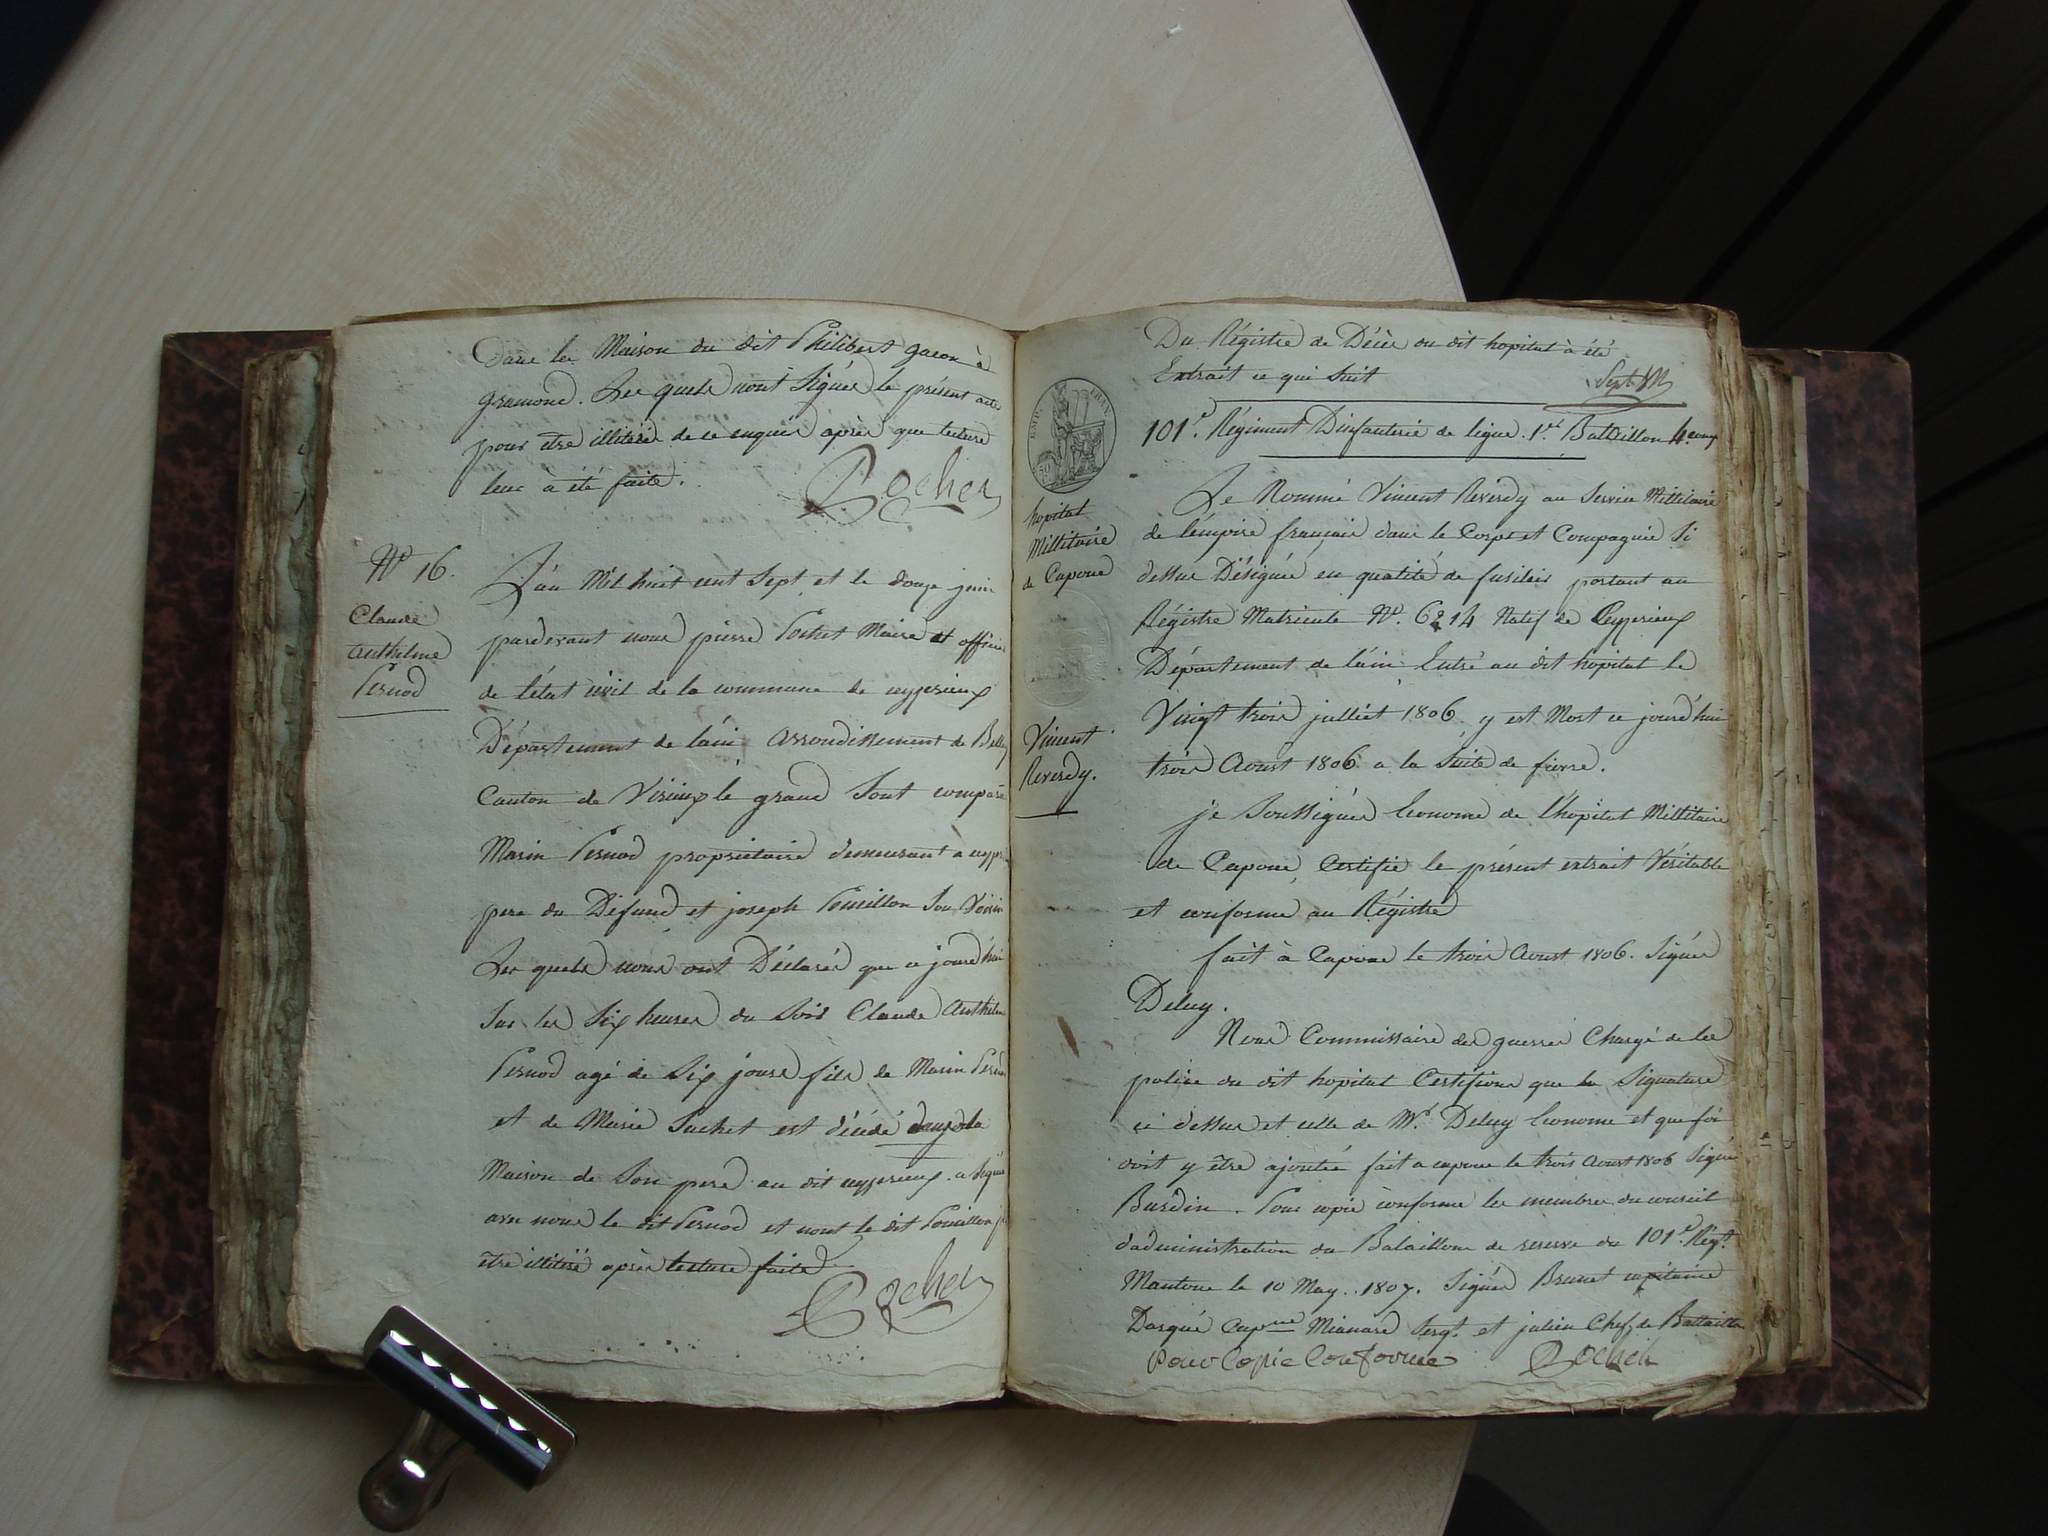 Dans la Maison du dit Philibert gacon à
gramond. Les quels n'ont Signés le présent acte
pour être illitéré de ce enquis après que lecture
leur à été faite.
Rochet
N° 16.
Claude
Anthelme
Pernod
L'an Mil huit cent Sept, et le douze juin
pardevant nous pierre Rochet Maire et officier
de l'état civil de la commune de ceyzerieux
Département de l'ain Arrondissement de Belley
Canton de Virieux le grand Sont comparu
Marin Pernod propriétaire demeurant à ceyze
pere du Défund et joseph Pouillon Son Voisin
Les quels nous ont Déclarés que ce jourd'hui
Sur les Six heures du Soir Claude Anthelme
Pernod agé de Six jours fils de Marin Pernod
et de Marie Suchet est décédé dans la
Maison de Son pere au dit ceyzerieux. a Signé
avec nous le dit Pernod et nont le dit Pouillon p
être illitéré après lecture faite
Rochet
Du Régistre de Décès du dit hopital à été
Extrait ce qui Suit
101e. Régiment D'infanterie de ligne. 1er. Battaillon 4e comp
hopital
Millitaire
de Capoue
Vincent
Reverdy.
Le Nommé Vincent Reverdy au Service Millitaire
de l'empire français dans le Corps et Compagnie Si
dessus Désignée en qualité de fusilier portant au
Régistre Matricule N°. 6214 Natif de Ceyzerieux
Département de l'ain, Entré au dit hopital le
Vingt trois julliet 1806 y est Mort ce jourd'hui
trois Aoust 1806 a la Suite de fievre.
je Soussignés Econome de l'hopital Millitaire
de Capoue, Certifie le présent extrait Véritable
et conforme au Régistre
fait à Capoue le trois Aoust 1806. Signés
Deluy.
Nous Commissaire des guerres Chargé de la
police du dit hopital Certifions que la Signature
ci dessus et celle de Mr. Deluy Econome et que foi
doit y être ajoutée fait a capoue le trois Aoust 1806 Signé
Burdin. Pour copie conforme les membres du conseil
d'administration du Bataillon de reserve du 101e. Régt.
Mantoue le 10 May. 1807. Signés Brunet capitaine
Dargué Capne Mianard Sergt. et julien Chef de Battaillon
Pour Copie Conforme Rochet